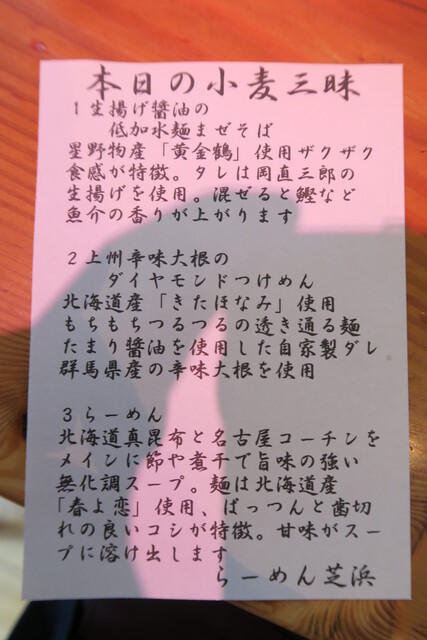 本日の小麦三昧
1生揚げ醬油の
低加水麺まぜそば
星野物産「黄金鶴」使用ザクザク
食感が特徴。タレは岡直三郎の
生揚げを使用。混ぜると鰹など
魚介の香りが上がります
2上州辛味大根の
ダイヤモンドつけめん
北海道産「きたほなみ」使用
もちもちつるつるの透き通る麺
たまり醬油を使用した自家製ダレ
群馬県産の辛味大根を使用
3らーめん
北海道真昆布と名古屋コーチンを
メインに節や煮干で旨味の強い
無化調スープ。麺は北海道産
「春よ恋」使用、ぱっつんと歯切
れの良いコシが特徴。甘味がスー
プに溶け出します
らーめん芝浜